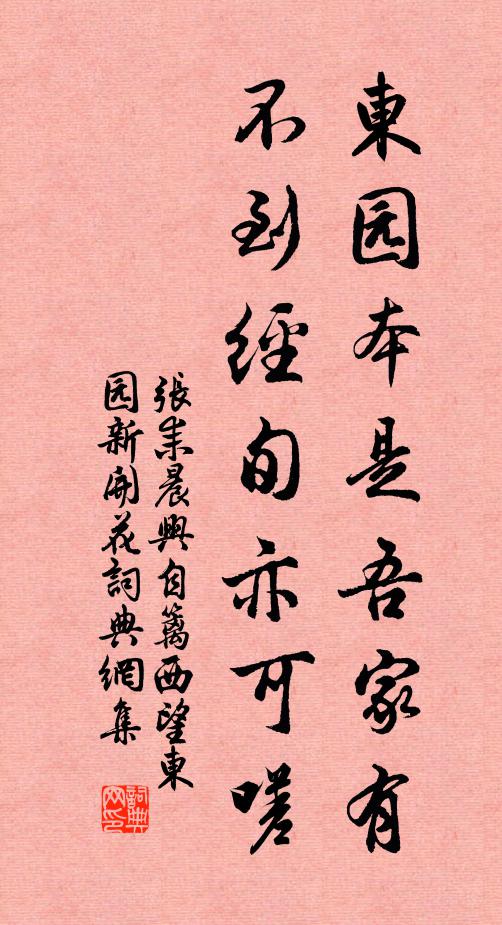 東园本是吾家有
不到經旬亦可嗟
張耒晨興自篱西望東
园新開花詞典網集
詞典
网印